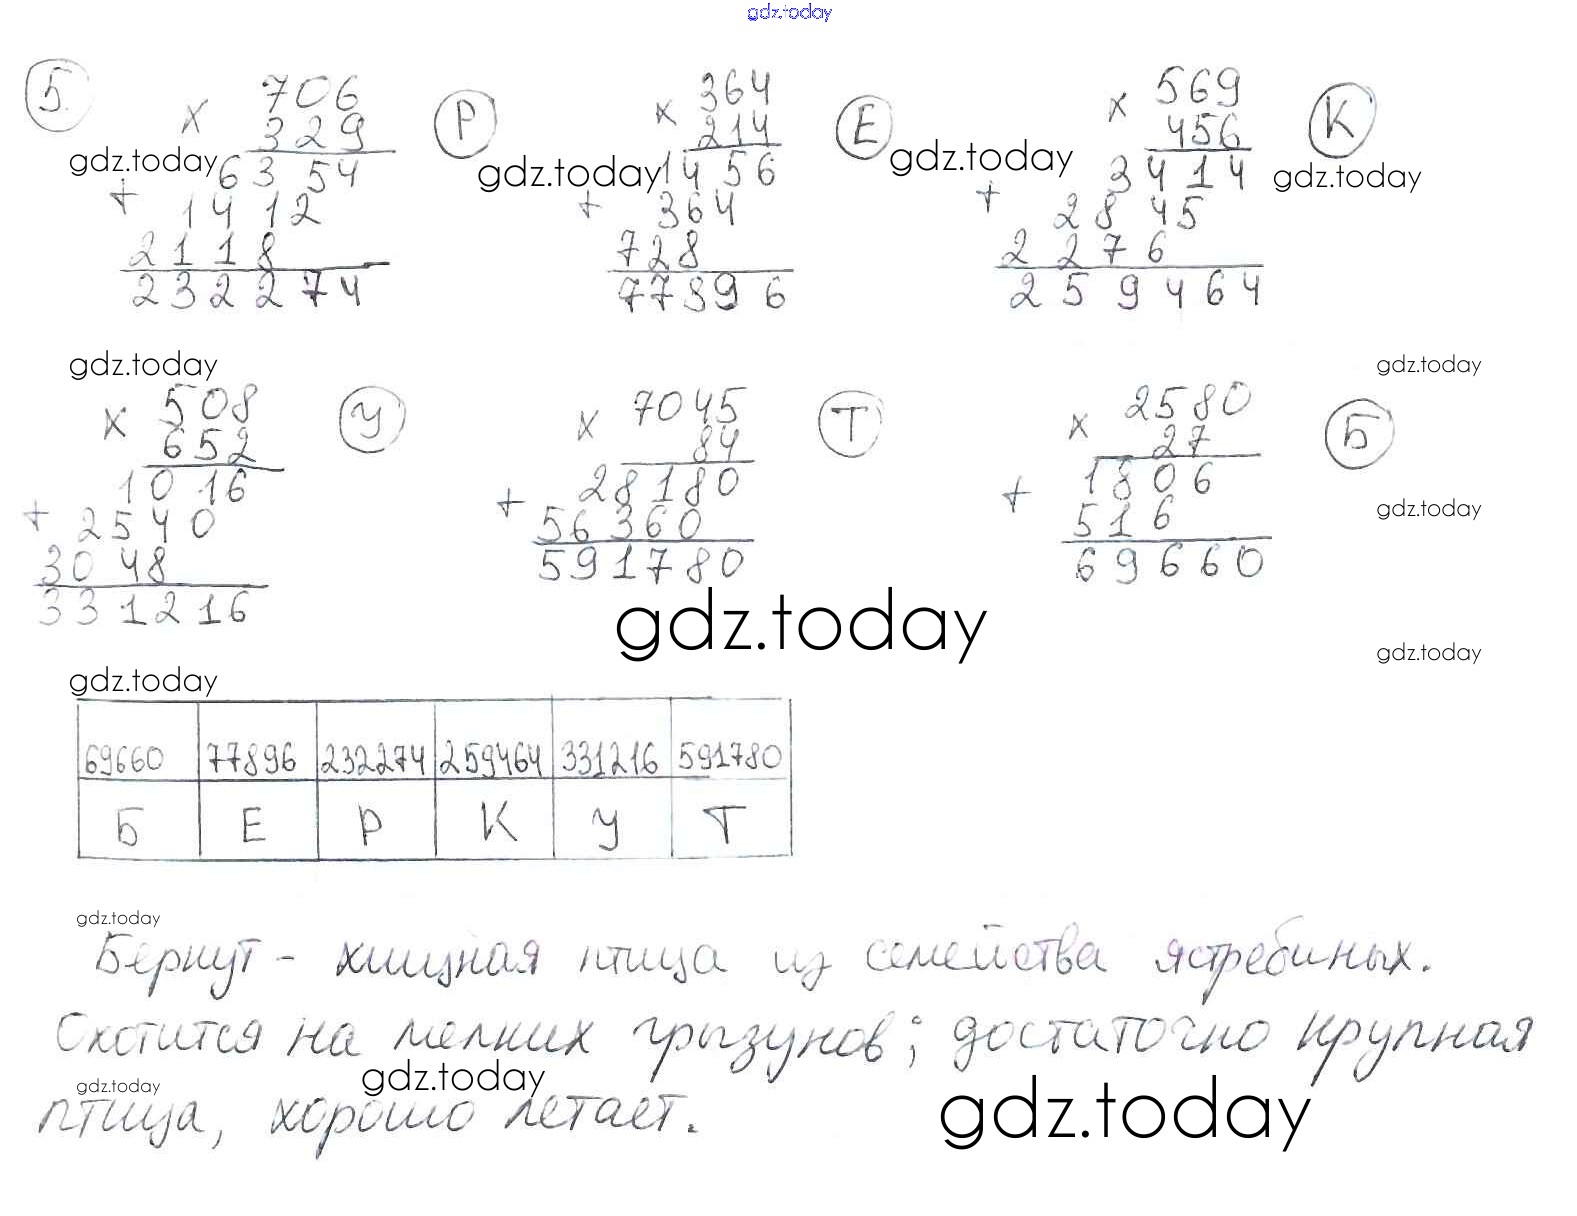 gdz.today
5. 706 Р 364 Е 569 К
× 329 × 214 × 456
gdz.today 6354 gdz.today 1456 gdz.today 3414 gdz.today
+ 1412 + 364 + 2845
2118 728 2276
232274 77896 259464
gdz.today gdz.today
× 508 У × 7045 Т × 2580 Б
652 84 27
1016 28180 1806
+ 2540 + 56360 + 516 gdz.today
3048 591780 69660
331216 gdz.today
gdz.today gdz.today
69660 77896 232274 259464 331216 591780
Б Е Р К У Т
gdz.today
Беркут - хищная птица из семейства ястребиных.
Охотится на мелких грызунов; достаточно крупная
gdz.today gdz.today gdz.today
птица, хорошо летает.